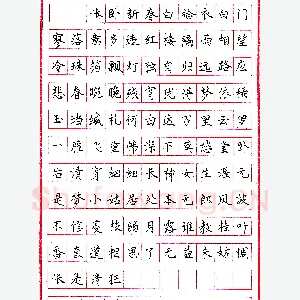 怅卧新春白袷衣白门
寥落意多违红楼隔雨相望
冷珠箔飘灯独自归远路应
悲春晼晚残宵犹得梦依稀
玉珰缄札何由达万里云罗
一雁飞重帏深下莫愁堂卧
后清宵细细长神女生涯元
是梦小姑居处本无郎风波
不信菱枝弱月露谁教桂叶
香直道相思了无益未妨惆
怅是清狂